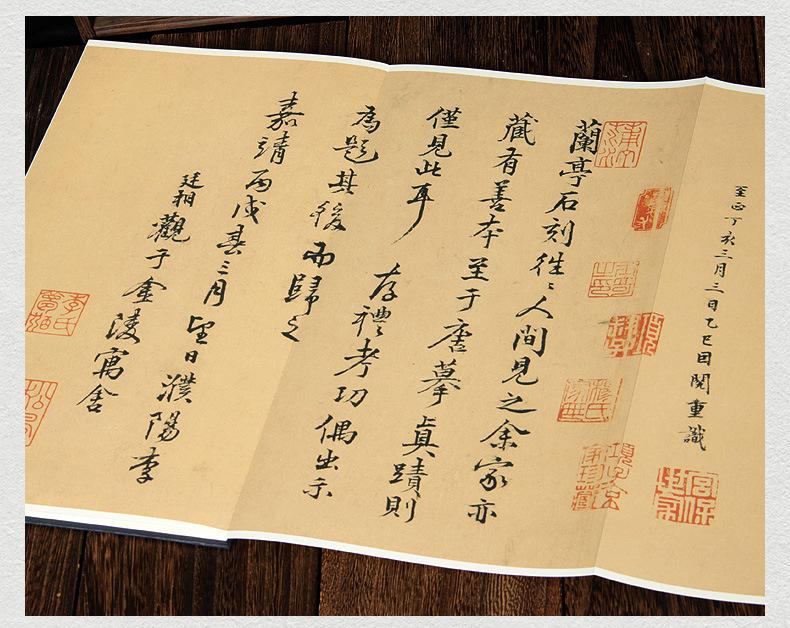 至正丁亥三月三日乙巳因閱重識
宮保世家
項子京家珍藏
蘭亭石刻徃〻人間見之余家亦
藏有善本至于唐摹真蹟則
僅見此耳存禮考功偶出示
為題其後而歸之
嘉靖丙戌春三月望日濮陽李
廷相觀于金陵寓舍